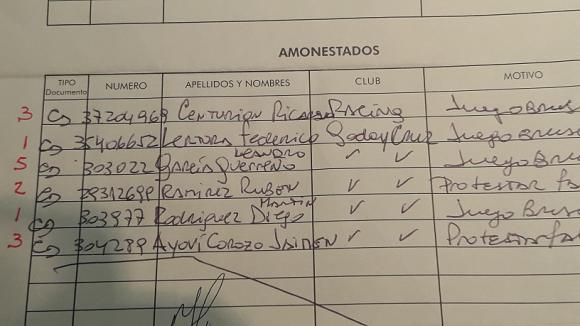 AMONESTADOS
TIPO Documento NUMERO APELLIDOS Y NOMBRES CLUB MOTIVO
3 37204968 CENTURION Ricardo RACING Juego Brus
1 35406652 Lertora Federico Godoy Cruz Juego Brus
5 303022 García Guerreño LEANDRO ✓ ✓ Juego Bru
2 29312699 Ramirez RUBEN ✓ ✓ Protestar fa
1 303977 Rodriguez Diego MARTIN ✓ ✓ Juego Brus
3 304289 AYOVÍ COROZO JAIMEN ✓ ✓ Protestar fa